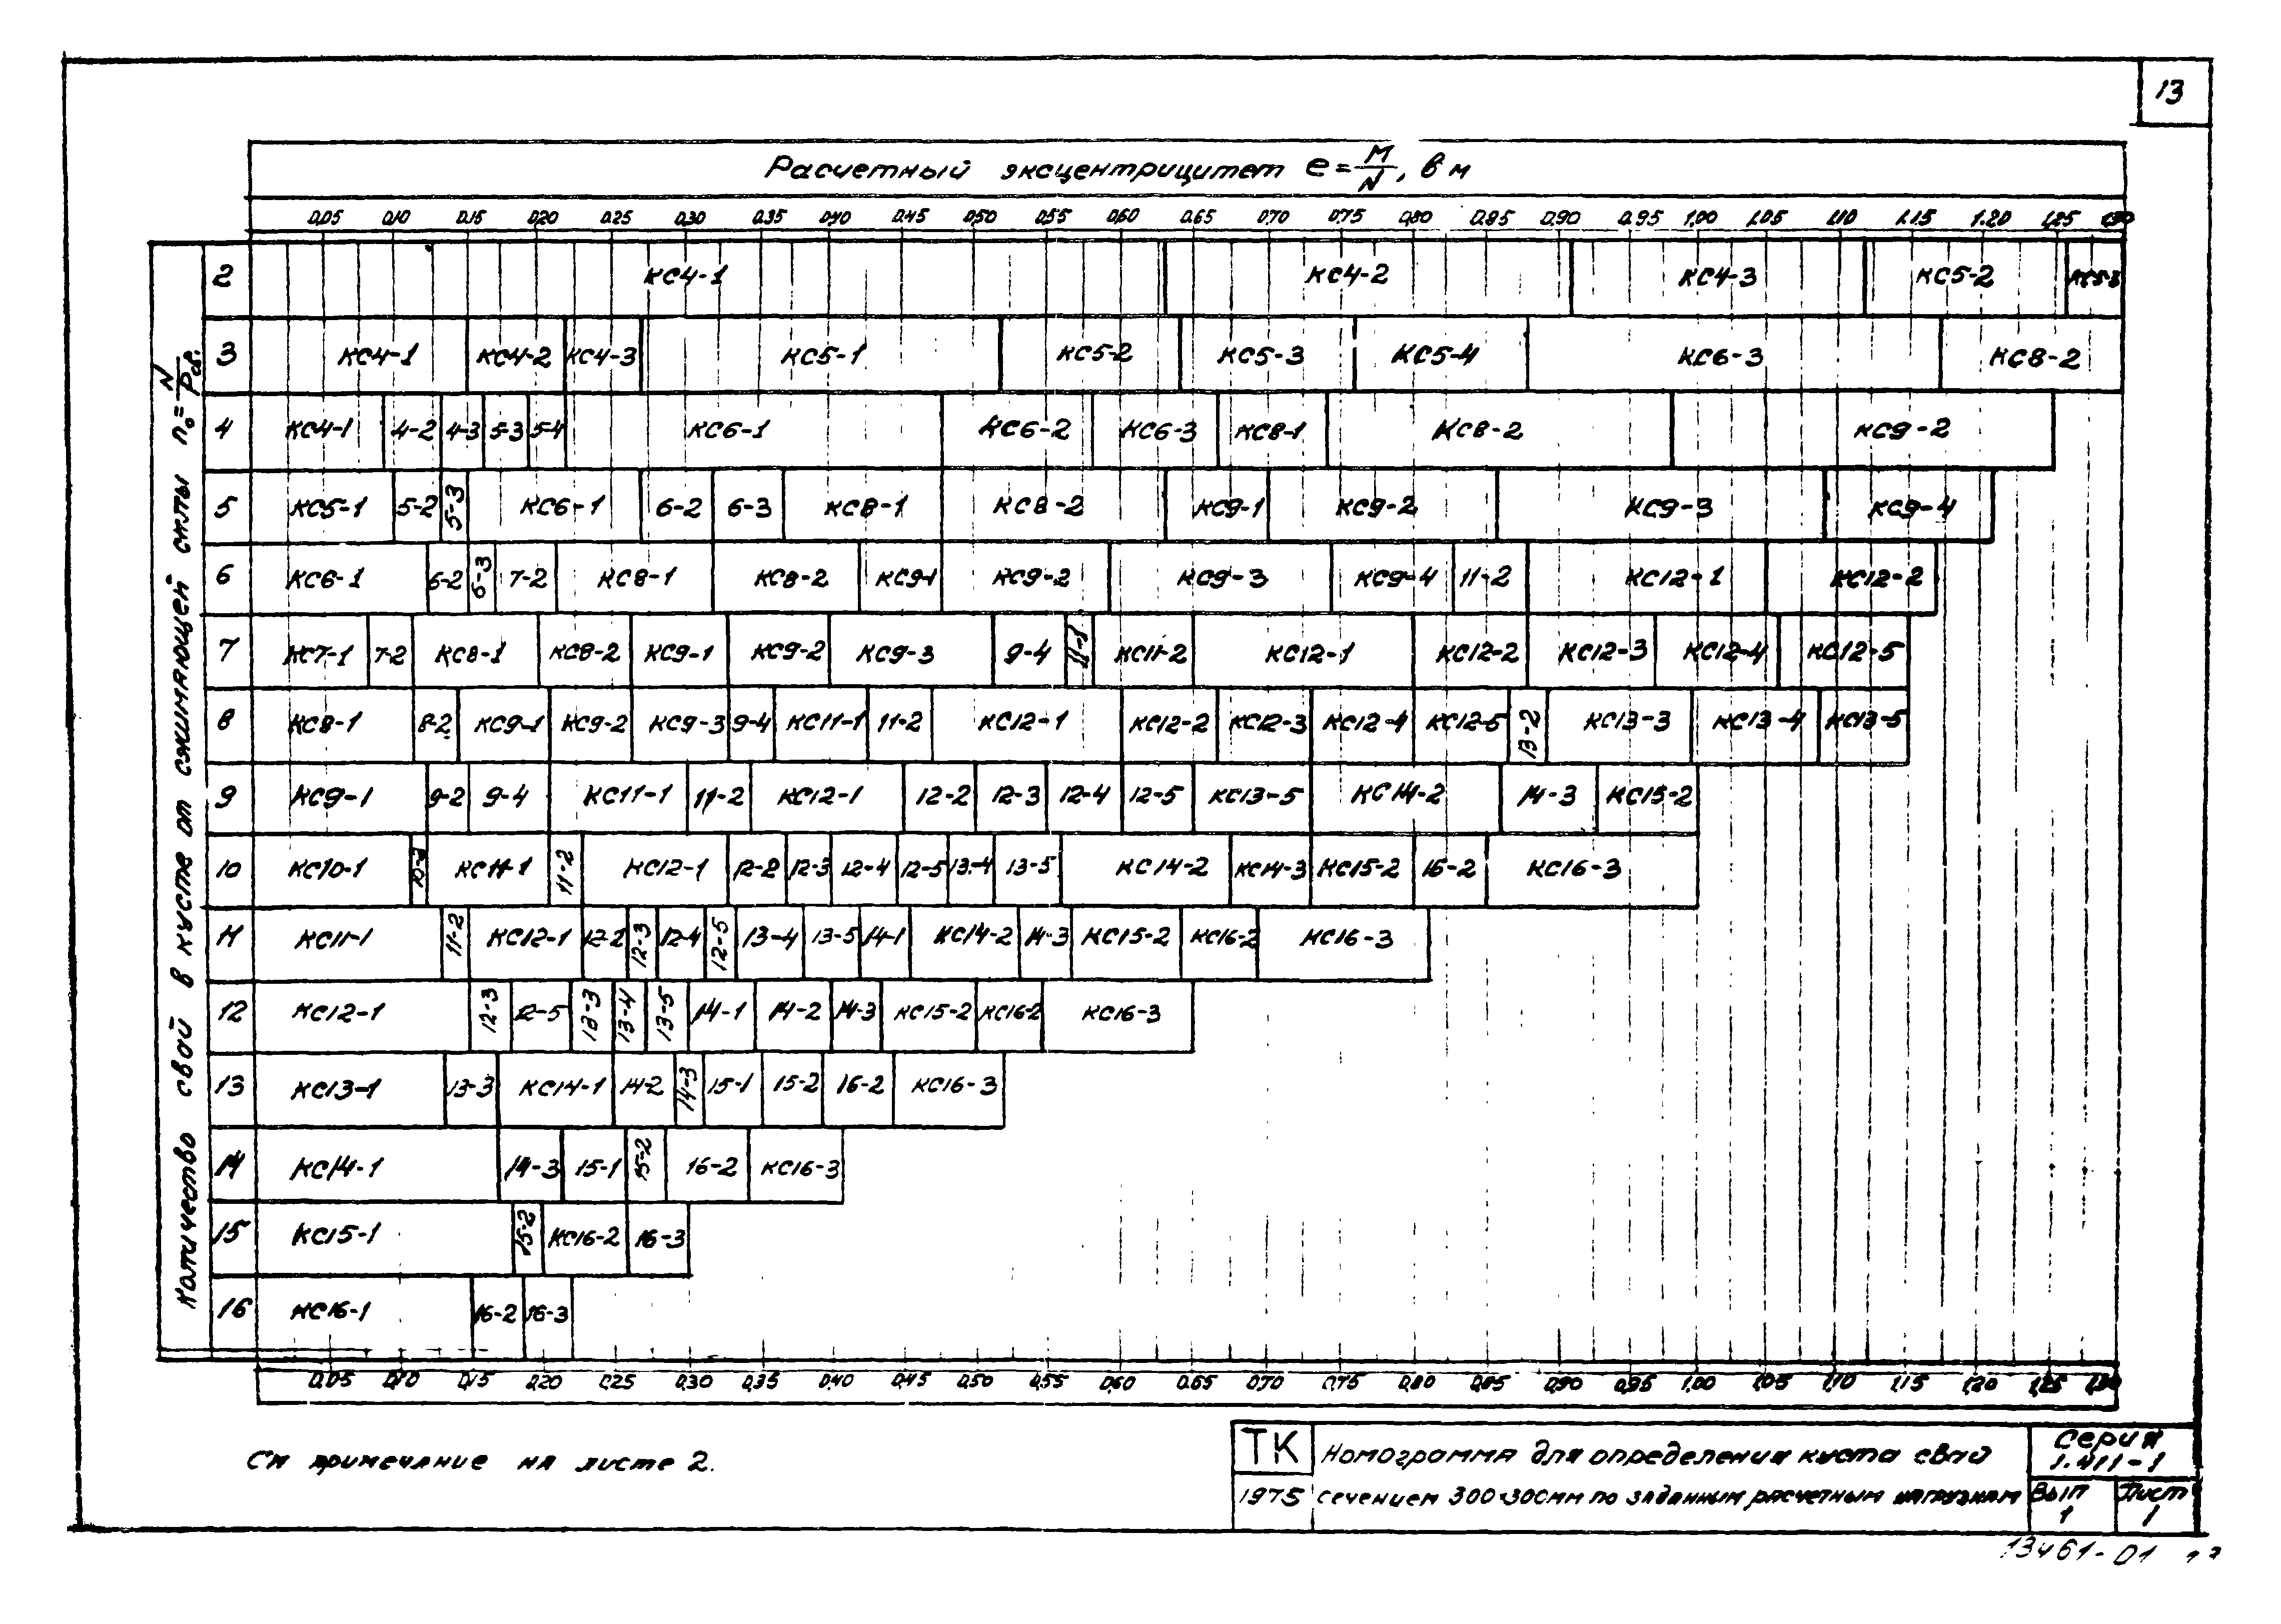 13
Расчетный эксцентрицитет e = M/N, в м
0,05 0,10 0,15 0,20 0,25 0,30 0,35 0,40 0,45 0,50 0,55 0,60 0,65 0,70 0,75 0,80 0,85 0,90 0,95 1,00 1,05 1,10 1,15 1,20 1,25 1,30
Количество свай в кусте от сжимающей силы n₀ = N/Pсв.
2 КС4-1 КС4-2 КС4-3 КС5-2 КС5-3
3 КС4-1 КС4-2 КС4-3 КС5-1 КС5-2 КС5-3 КС5-4 КС6-3 КС8-2
4 КС4-1 4-2 4-3 5-3 5-4 КС6-1 КС6-2 КС6-3 КС8-1 КС8-2 КС9-2
5 КС5-1 5-2 5-3 КС6-1 6-2 6-3 КС8-1 КС8-2 КС9-1 КС9-2 КС9-3 КС9-4
6 КС6-1 6-2 6-3 7-2 КС8-1 КС8-2 КС9-1 КС9-2 КС9-3 КС9-4 11-2 КС12-1 КС12-2
7 КС7-1 7-2 КС8-1 КС8-2 КС9-1 КС9-2 КС9-3 9-4 11-1 КС11-2 КС12-1 КС12-2 КС12-3 КС12-4 КС12-5
8 КС8-1 8-2 КС9-1 КС9-2 КС9-3 9-4 КС11-1 11-2 КС12-1 КС12-2 КС12-3 КС12-4 КС12-5 13-2 КС13-3 КС13-4 КС13-5
9 КС9-1 9-2 9-4 КС11-1 11-2 КС12-1 12-2 12-3 12-4 12-5 КС13-5 КС14-2 14-3 КС15-2
10 КС10-1 10-2 КС11-1 11-2 КС12-1 12-2 12-3 12-4 12-5 13-4 13-5 КС14-2 КС14-3 КС15-2 16-2 КС16-3
11 КС11-1 11-2 КС12-1 12-2 12-3 12-4 12-5 13-4 13-5 14-1 КС14-2 14-3 КС15-2 КС16-2 КС16-3
12 КС12-1 12-3 12-5 13-3 13-4 13-5 14-1 14-2 14-3 КС15-2 КС16-2 КС16-3
13 КС13-1 13-3 КС14-1 14-2 14-3 15-1 15-2 16-2 КС16-3
14 КС14-1 14-3 15-1 15-2 16-2 КС16-3
15 КС15-1 15-2 КС16-2 16-3
16 КС16-1 16-2 16-3
0,05 0,10 0,15 0,20 0,25 0,30 0,35 0,40 0,45 0,50 0,55 0,60 0,65 0,70 0,75 0,80 0,85 0,90 0,95 1,00 1,05 1,10 1,15 1,20 1,25 1,30
См примечание на листе 2.
ТК Номограмма для определения куста свай
1975 сечением 300×300мм по заданным расчетным нагрузкам
Серия
1.411-1
Вып Лист
1 1
13461-01